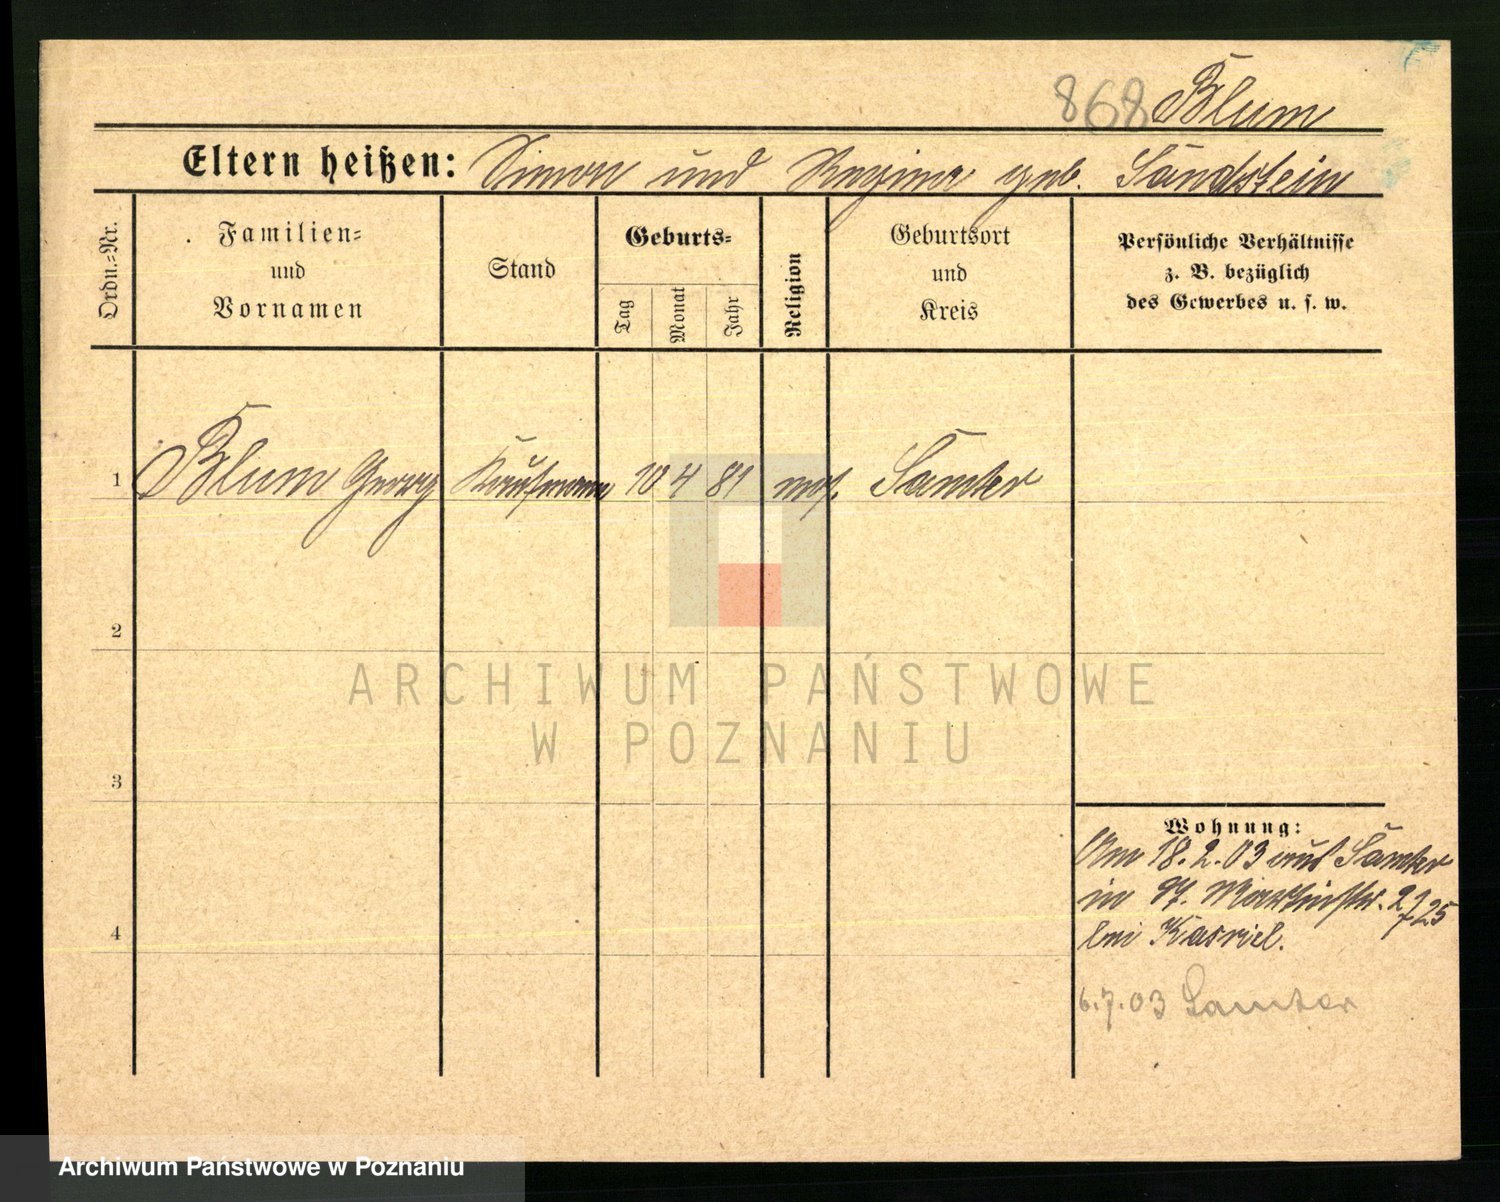 868 Blum
Eltern heißen: Simon und Regina geb. Sandstein
Ordn.-Nr.
Familien-
und
Vornamen
Stand
Geburts-
Tag
Monat
Jahr
Religion
Geburtsort
und
Kreis
Persönliche Verhältnisse
z. B. bezüglich
des Gewerbes u. s. w.
1 Blum Georg Kaufmann 10 4 81 mos. Samter
2
3
4
Wohnung:
Am 18.2.03 aus Samter
in Martinstr.
bei Kasriel.
6.7.03 Samter
ARCHIWUM PAŃSTWOWE
W POZNANIU
Archiwum Państwowe w Poznaniu